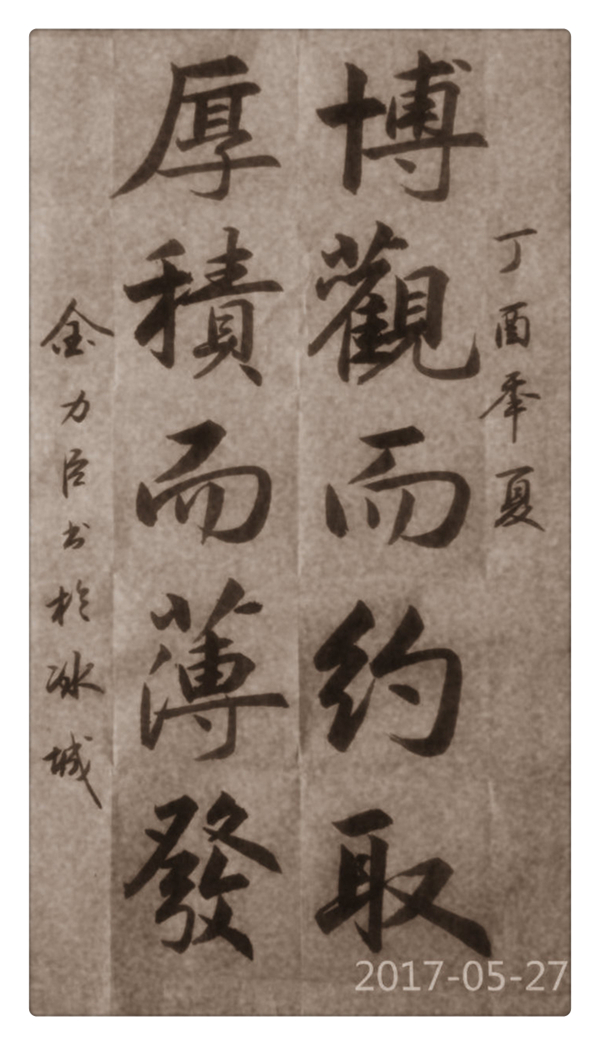 丁酉季夏
博觀而约取
厚積而薄發
金力臣书於冰城
2017-05-27